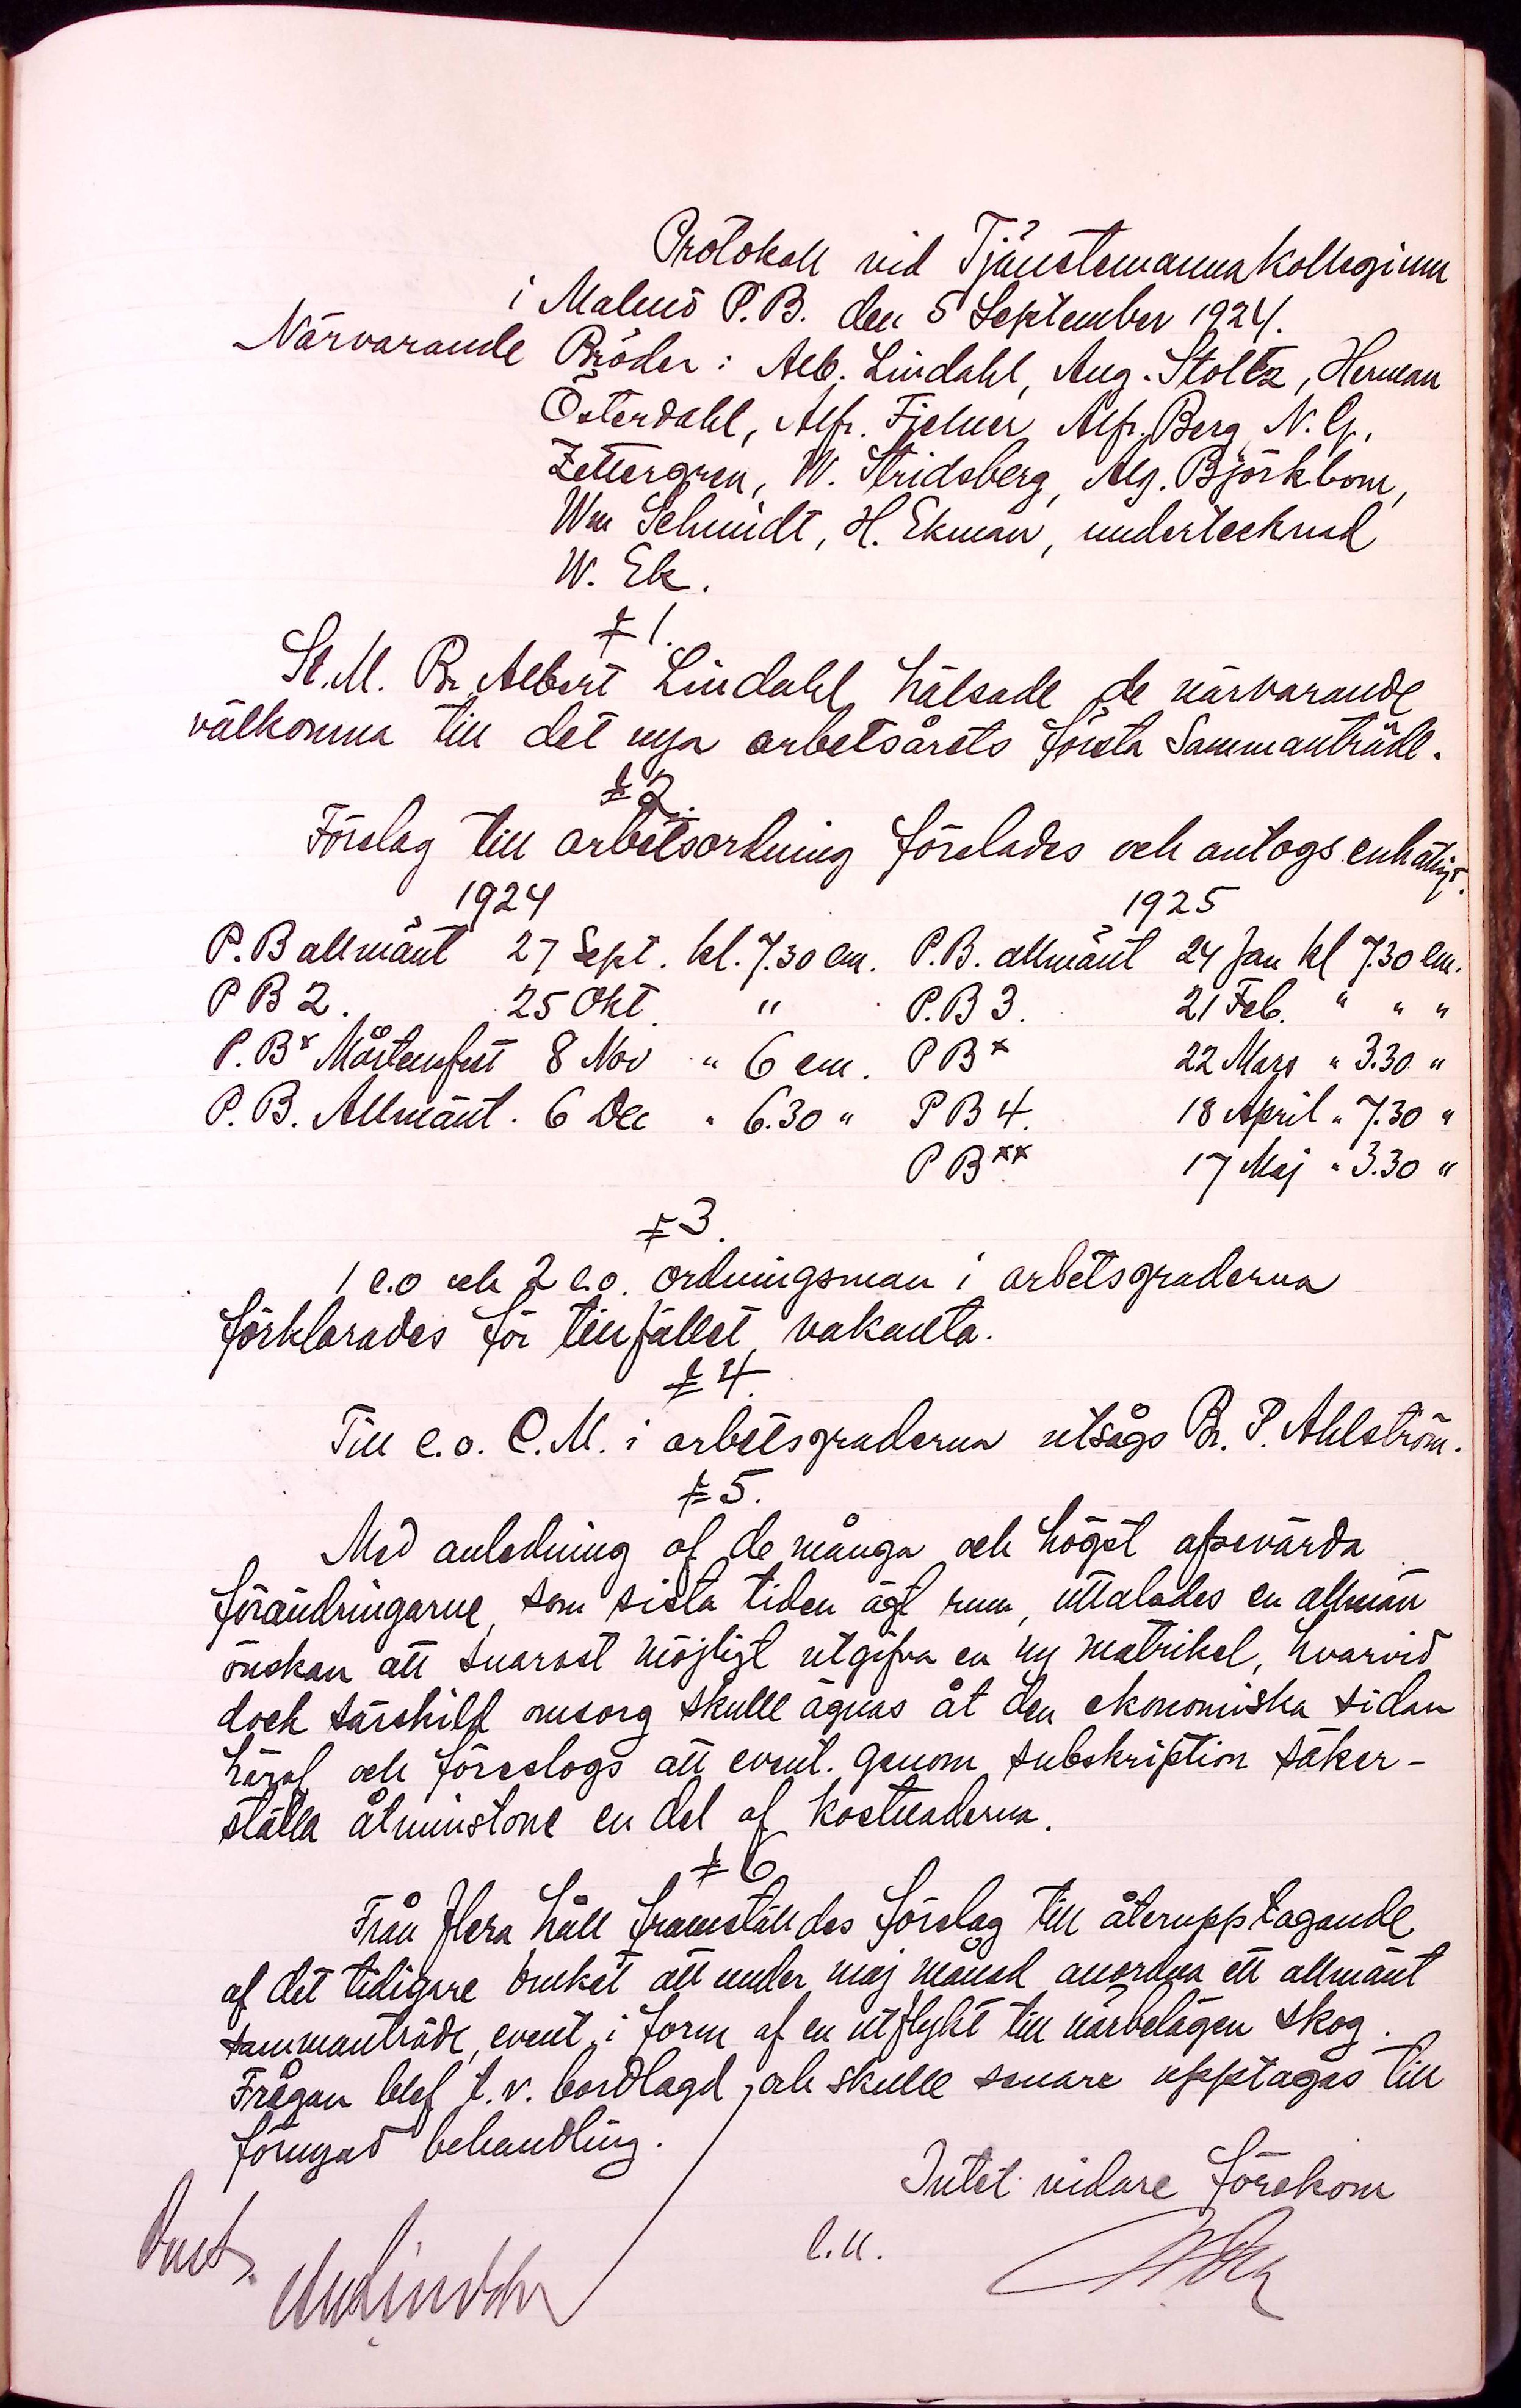 Protokoll vid Tjänstemannakollegium
i Malmö P.B. den 5 September 1924.
Närvarande Bröder: Alb. Lindahl, Aug. Stoltz, Herman
Österdahl, Alfr. Fjelner, Alfr. Berg, N. G.
Zettergren, W. Stridsberg, Alg. Björkbom,
Wm Schmidt, H. Ekman, undertecknad
W. Ek.
§ 1.
St. M. Br. Albert Lindahl hälsade de närvarande
välkomna till det nya arbetsårets första Sammanträde.
§ 2.
Förslag till arbetsordning förelades och antogs enhälligt.
1924 1925
P.B allmänt 27 Sept. kl. 7.30 em. P.B. allmänt 24 Jan kl 7.30 em.
P B 2. 25 Okt. " P.B 3. 21 Feb. " " "
P.B* Mårtensfest 8 Nov " 6 em. P B* 22 Mars " 3.30 "
P.B. Allmänt. 6 Dec " 6.30 " P B 4. 18 April " 7.30 "
P B** 17 Maj " 3.30 "
§ 3.
1 e.o och 2 e.o. ordningsman i arbetsgraderna
förklarades för tillfället vakanta.
§ 4.
Till e.o. C.M. i arbetsgraderna utsågs Br. P. Ahlström.
§ 5.
Med anledning af de många och högst afsevärda
förändringarne, som sista tiden ägt rum, uttalades en allmän
önskan att snarast möjligt utgifva en ny matrikel, hvarvid
dock särskild omsorg skulle ägnas åt den ekonomiska sidan
häraf och föreslogs att event. genom subskription säker-
ställa åtminstone en del af kostnaderna.
§ 6
Från flera håll framställdes förslag till återupptagande
af det tidigare bruket att under maj månad anordna ett allmänt
sammanträde, event. i form af en utflykt till närbelägen skog.
Frågan blef t.v. bordlagd, och skulle senare upptagas till
förnyad behandling.
Intet vidare förekom
Just. AlbLindahl
e.u. W. Ek